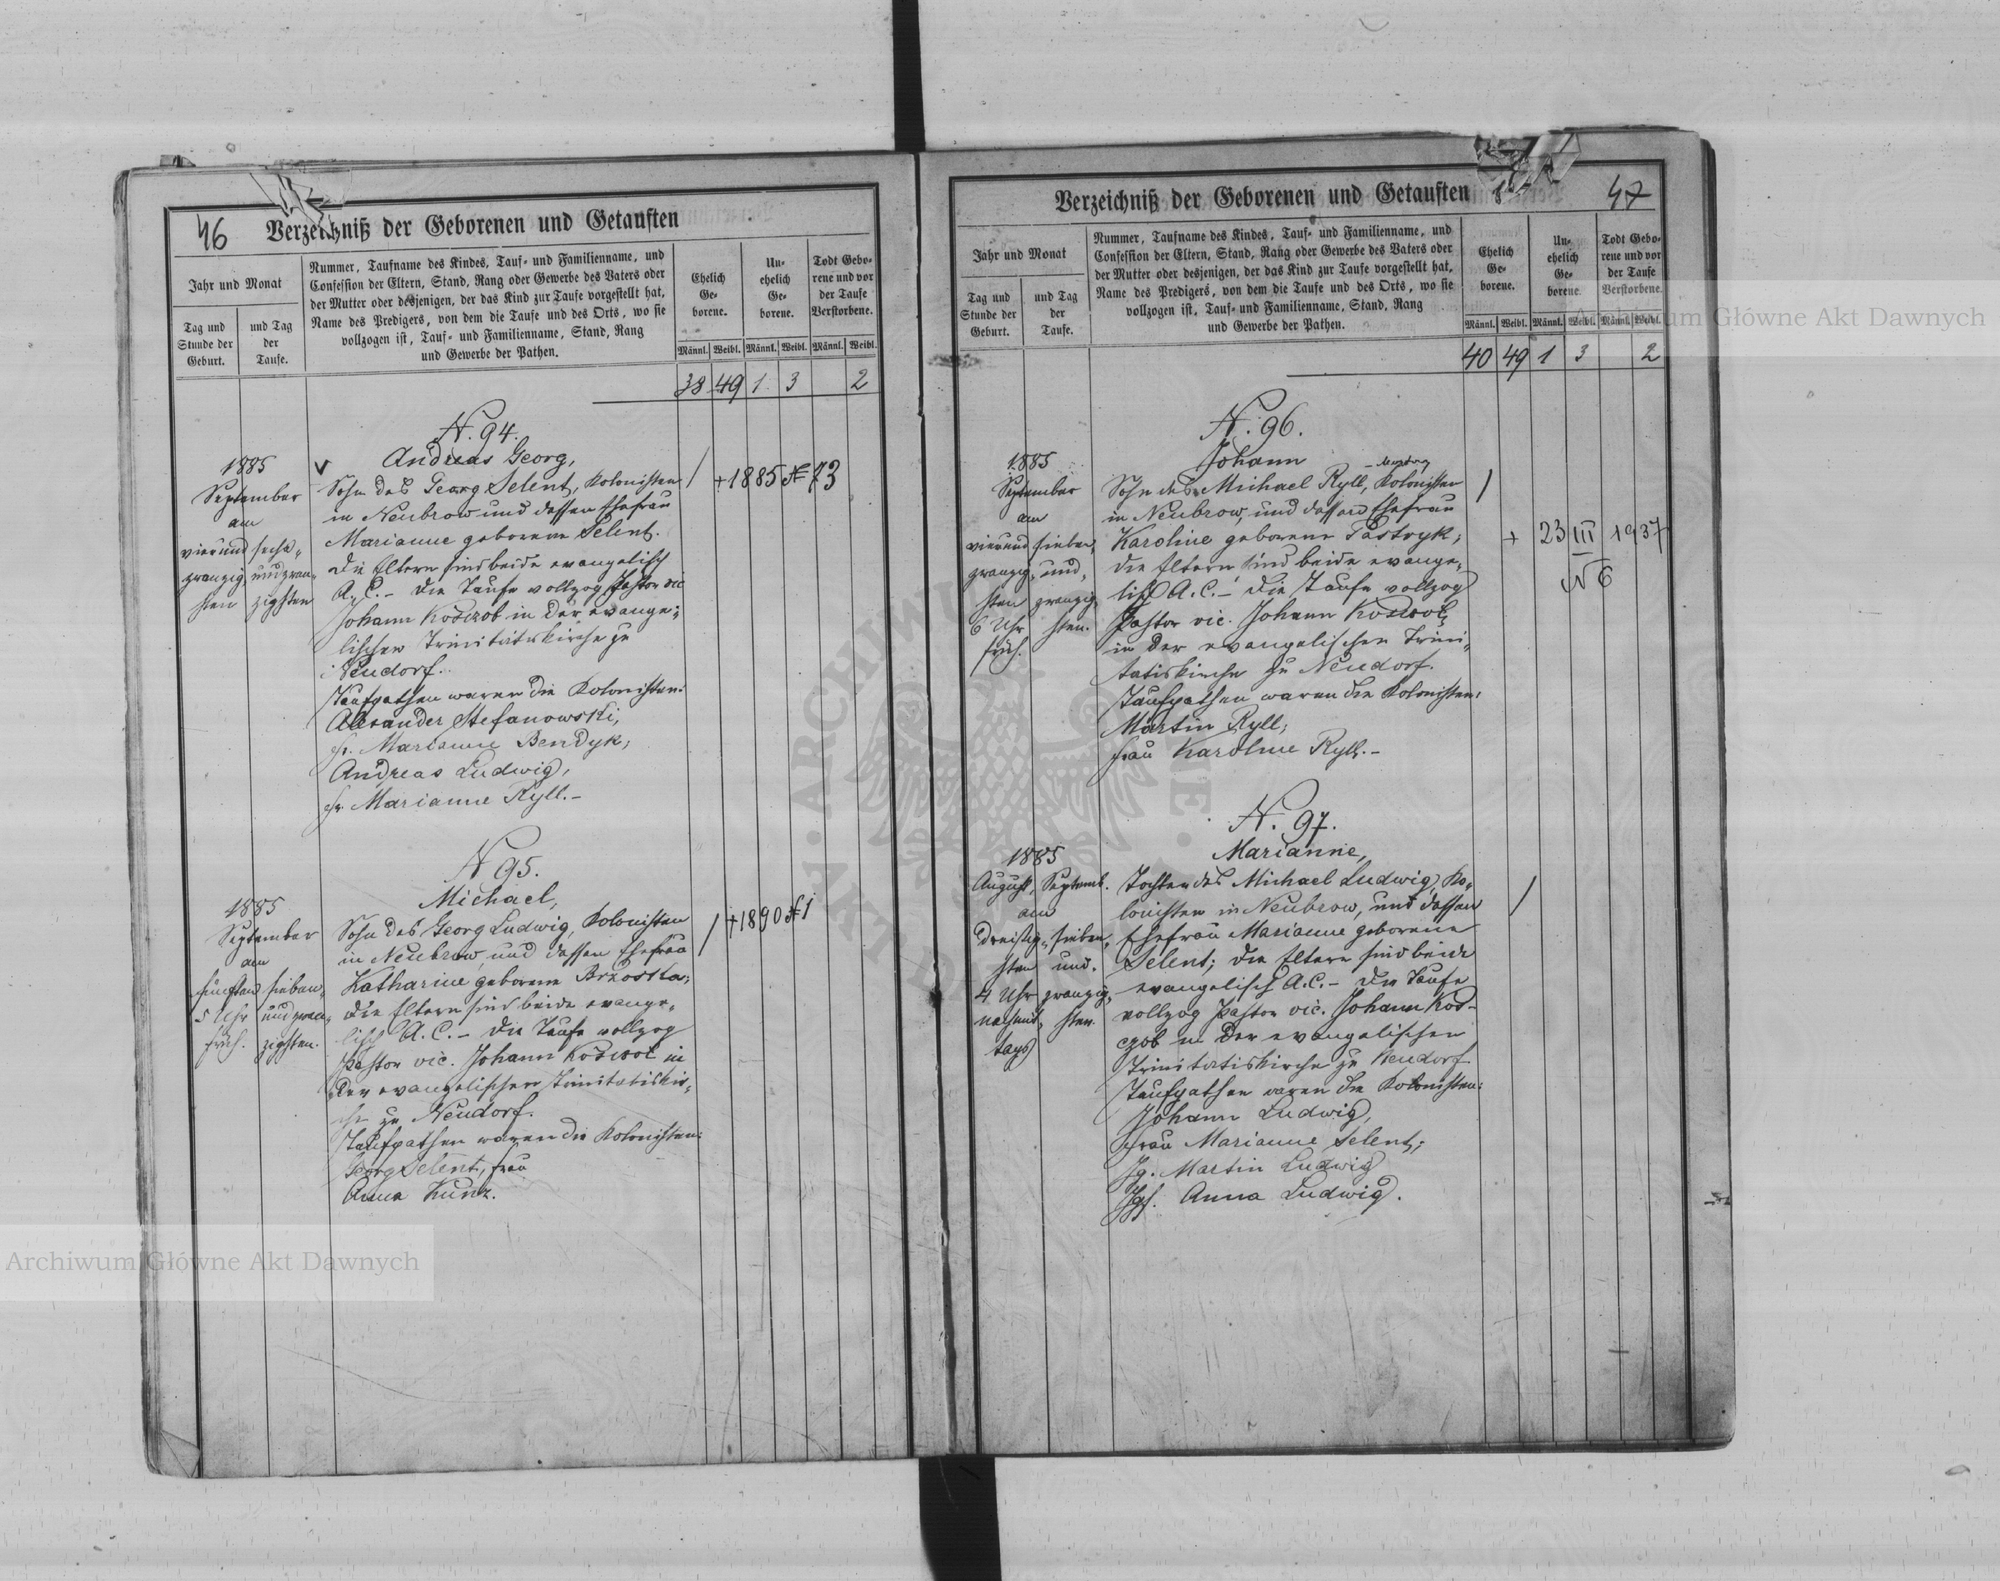 46 Verzeichniß der Geborenen und Getauften
Jahr und Monat
Tag und Stunde der Geburt.
und Tag der Taufe.
Nummer, Taufname des Kindes, Tauf- und Familienname, und
Confession der Eltern, Stand, Rang oder Gewerbe des Vaters oder
der Mutter oder desjenigen, der das Kind zur Taufe vorgestellt hat,
Name des Predigers, von dem die Taufe und des Orts, wo sie
vollzogen ist, Tauf- und Familienname, Stand, Rang
und Gewerbe der Pathen.
Ehelich Geborene.
Unehelich Geborene.
Todt Geborene und vor der Taufe Verstorbene.
Männl. Weibl. Männl. Weibl. Männl. Weibl.
38 49 1 3 2
N. 94.
Andreas Georg,
1885
September
am
vierund sechs-
zwanzig- undzwan-
sten zigsten
Sohn des Georg Selent, Kolonisten
in Neubrow und dessen Ehefrau
Marianne geborene Selent.
Die Eltern sind beide evangelisch
A. C. – Die Taufe vollzog Pastor vic
Johann Koszob in der evange-
lischen Trinitatiskirche zu
Neudorf.
Taufpathen waren die Kolonisten:
Alexander Stefanowski,
fr. Marianne Bendyk,
Andreas Ludwig,
fr. Marianne Ryll. –
/ + 1885 N 73
N 95.
Michael,
1885
September
am
fünften sieben-
5 Uhr undzwan-
früh. zigsten.
Sohn des Georg Ludwig, Kolonisten
in Neubrow und dessen Ehefrau
Katharine geborene Brzoska;
die Eltern sind beide evange-
lisch A. C. – Die Taufe vollzog
Pastor vic. Johann Koszob in
der evangelischen Trinitatiskir-
che zu Neudorf.
Taufpathen waren die Kolonisten:
Georg Selent, frau
Anna Kunz.
/ + 1890 N 1
Verzeichniß der Geborenen und Getauften 18 47
Jahr und Monat
Tag und Stunde der Geburt.
und Tag der Taufe.
Nummer, Taufname des Kindes, Tauf- und Familienname, und
Confession der Eltern, Stand, Rang oder Gewerbe des Vaters oder
der Mutter oder desjenigen, der das Kind zur Taufe vorgestellt hat,
Name des Predigers, von dem die Taufe und des Orts, wo sie
vollzogen ist, Tauf- und Familienname, Stand, Rang
und Gewerbe der Pathen.
Ehelich Geborene.
Unehelich Geborene.
Todt Geborene und vor der Taufe Verstorbene.
Männl. Weibl. Männl. Weibl. Männl. Weibl.
40 49 1 3 2
N. 96.
Johann
1885
September
am
vierund sieben-
zwanzig- und-
sten zwanzig-
6 Uhr sten.
früh.
Sohn des Michael Ryll, Kolonisten
in Neubrow, und dessen Ehefrau
Karoline geborene Pastryk;
die Eltern sind beide evange-
lisch A. C. – Die Taufe vollzog
Pastor vic. Johann Koszob
in der evangelischen Trini-
tatiskirche zu Neudorf.
Taufpathen waren die Kolonisten:
Martin Ryll,
frau Karoline Ryll. –
/
+ 23 III 1937
N 6
N. 97.
Marianne,
1885
August, Septemb.
am
Dreisig- sieben-
sten und-
4 Uhr zwanzig-
nachmit- sten.
tags
Tochter des Michael Ludwig, Ko-
lonisten in Neubrow, und dessen
Ehefrau Marianne geborene
Selent; die Eltern sind beide
evangelisch A. C. – Die Taufe
vollzog Pastor vic. Johann Kos-
czob in der evangelischen
Trinitatiskirche zu Neudorf.
Taufpathen waren die Kolonisten:
Johann Ludwig,
frau Marianne Selent;
Jg. Martin Ludwig
Jgf. Anna Ludwig.
/
Archiwum Główne Akt Dawnych
Archiwum Główne Akt Dawnych